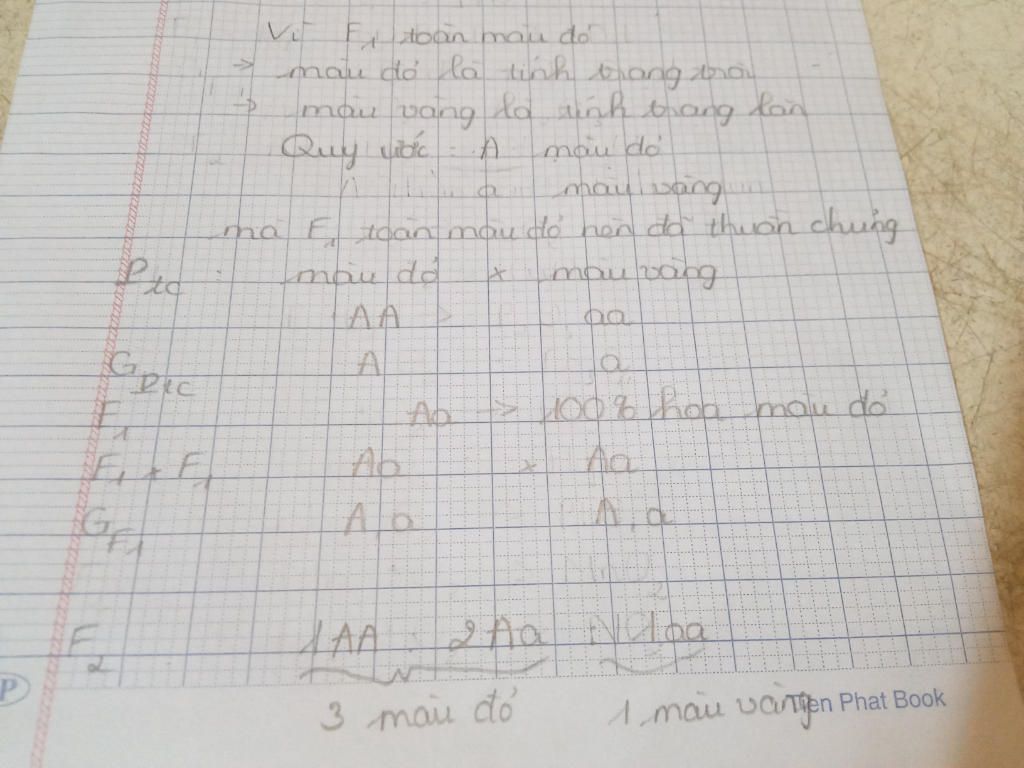 Vì F1 toàn màu đỏ
→ màu đỏ là tính trạng trội
→ màu vàng là tính trạng lặn
Quy ước: A màu đỏ
a màu vàng
mà F1 toàn màu đỏ nên đỏ thuần chủng
Ptc: màu đỏ x màu vàng
AA aa
GPtc A a
F1 Aa → 100% hoa màu đỏ
F1 x F1 Aa x Aa
GF1 A, a A, a
F2 1AA : 2Aa : 1aa
3 màu đỏ 1 màu vàng
Tien Phat Book
P